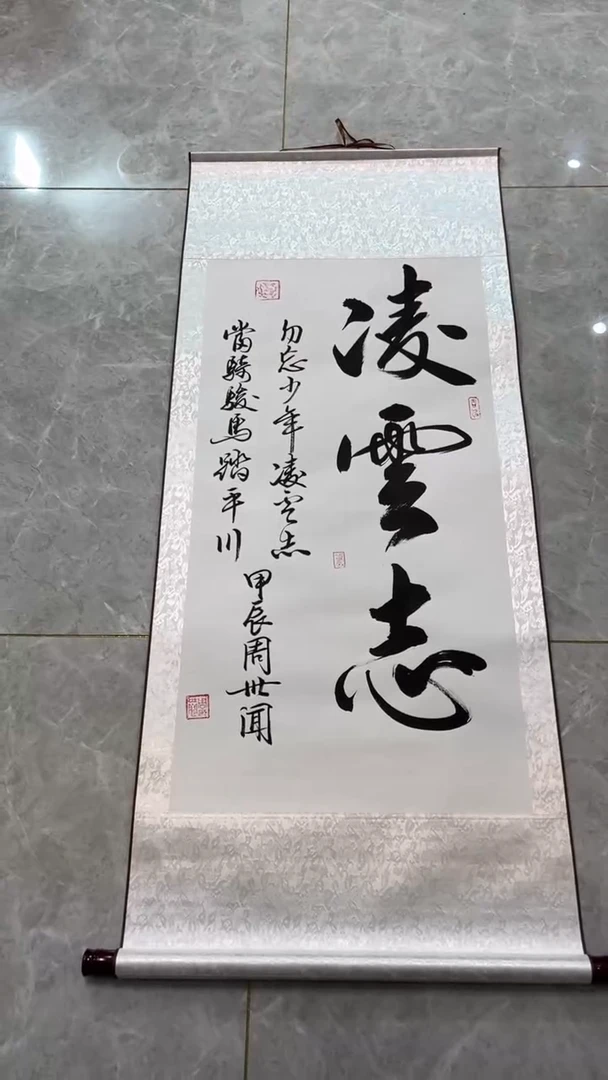 凌雲志
勿忘少年凌雲志
當騎駿馬踏平川
甲辰周世闻